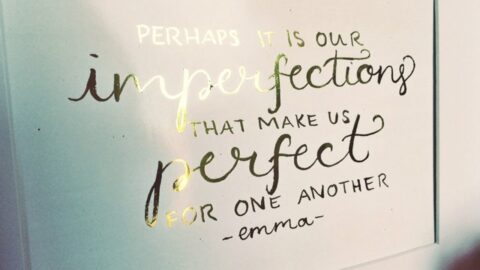 PERHAPS IT IS OUR
imperfections
THAT MAKE US
perfect
FOR ONE ANOTHER
-emma-